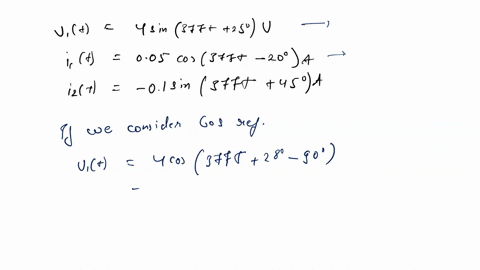 v₁(t) = 4 sin(377t + 25°) V →
i₁(t) = 0.05 cos(377t - 20°) A →
i₂(t) = -0.1 sin(377t + 45°) A
If we consider Cos ref.
v₁(t) = 4 cos(377t + 28° - 90°)
=